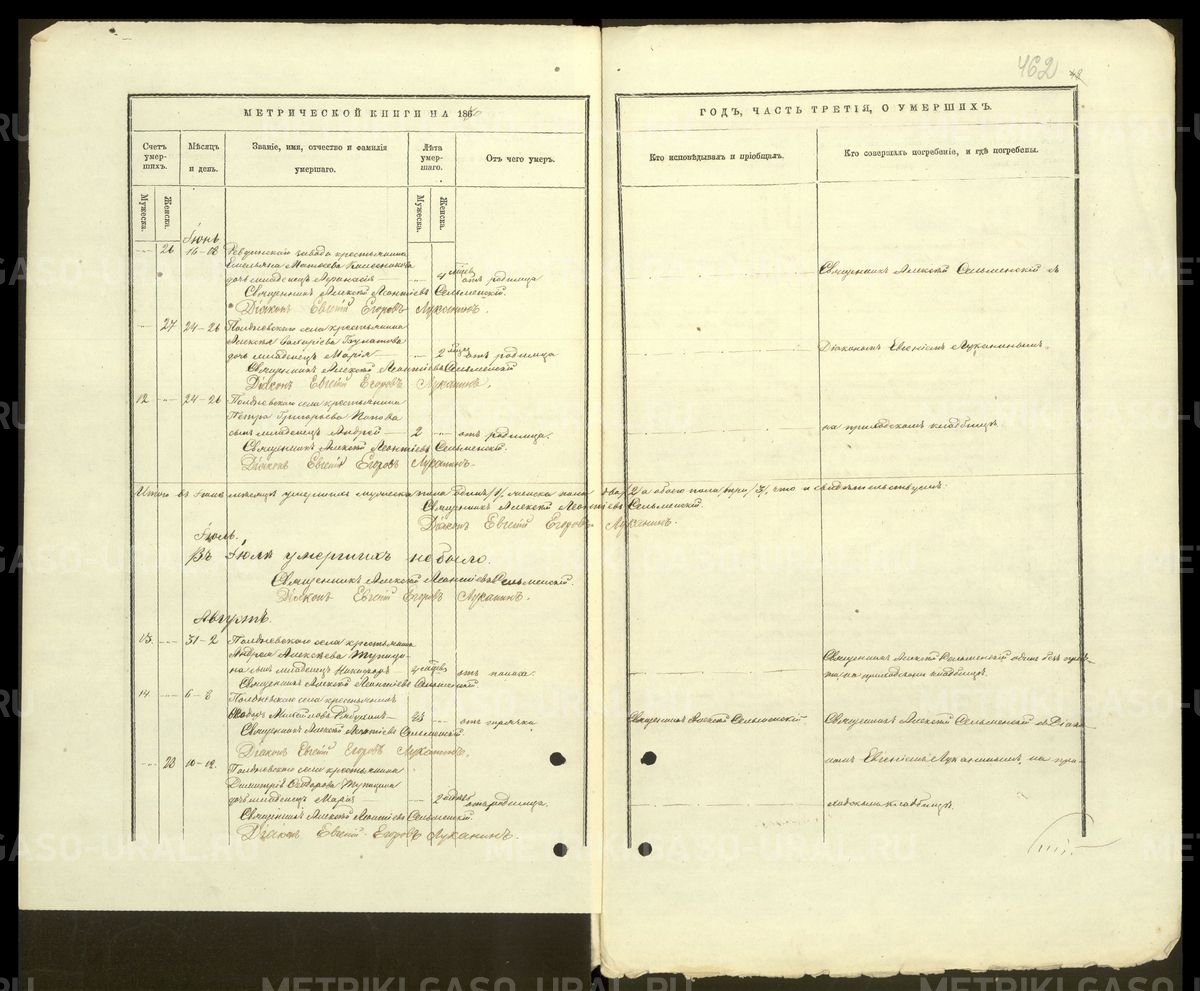 462
МЕТРИЧЕСКОЙ КНИГИ НА 186
ГОДЪ, ЧАСТЬ ТРЕТІЯ, О УМЕРШИХЪ.
Счетъ умершихъ.
Мѣсяцъ и день.
Званіе, имя, отчество и фамилія умершаго.
Лѣта умершаго.
Отъ чего умеръ.
Кто исповѣдывалъ и пріобщалъ.
Кто совершалъ погребеніе, и гдѣ погребены.
Мужеска.
Женска.
Мужеска.
Женска.
Іюнь.
26 16-18 Ревдинскаго завода крестьянина
дочь младенецъ 4 отъ родимца
Священникъ Алексѣй Сельменскій съ
Священникъ Алексѣй Леонтіевъ Сельменскій.
Діаконъ Евгеній Егоровъ Луканинъ.
27 24-26 Полдневскаго села крестьянина
дочь младенецъ Марія 2 отъ родимца
Діакономъ Евгеніемъ Луканинымъ,
Священникъ Алексѣй Леонтіевъ Сельменскій
Діаконъ Евгеній Егоровъ Луканинъ.
12 24-26 Полдневскаго села крестьянина
Петра Григорьева Попова
сынъ младенецъ Андрей 2 отъ родимца.
на приходскомъ кладбищѣ
Священникъ Алексѣй Леонтіевъ Сельменскій.
Діаконъ Евгеній Егоровъ Луканинъ.
Итого въ Іюнѣ мѣсяцѣ умершихъ мужеска пола одинъ /1/, женска пола два /2/ а обоего пола три /3/, что и свидѣтельствуемъ:
Священникъ Алексѣй Леонтіевъ Сельменскій.
Діаконъ Евгеній Егоровъ Луканинъ.
Іюль.
Въ Іюлѣ умершихъ небыло.
Священникъ Алексѣй Леонтіевъ Сельменскій.
Діаконъ Евгеній Егоровъ Луканинъ.
Августъ.
13. 31-2 Полдневскаго села крестьянина
Андрея Алексѣева Тупицина
сынъ младенецъ Никаноръ 4 отъ поноса
Священникъ Алексѣй Сельменскій одинъ безъ причта
на приходскомъ кладбищѣ.
Священникъ Алексѣй Леонтіевъ Сельменскій.
14. 6-8 Полдневскаго села крестьянинъ
отъ горячки
Священникъ Алексѣй Сельменскій.
Священникъ Алексѣй Сельменскій съ Діакономъ
Священникъ Алексѣй Леонтіевъ Сельменскій
Діаконъ Евгеній Егоровъ Луканинъ.
Евгеніемъ Луканинымъ, на приходскомъ кладбищѣ.
28 10-12. Полдневскаго села крестьянина
Димитрія Тупицина
дочь младенецъ Марія 2 отъ родимца.
Священникъ Алексѣй Леонтіевъ Сельменскій.
Діаконъ Евгеній Егоровъ Луканинъ.
METRIKI.GASO-URAL.RU